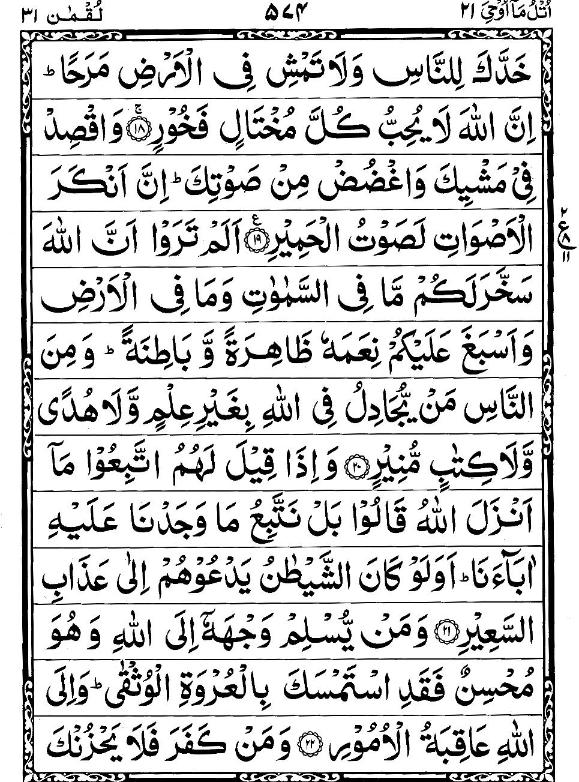 اتل ما اوحی ۲۱ ۵۷۴ لقمٰن ۳۱
خَدَّكَ لِلنَّاسِ وَلَا تَمْشِ فِی الْاَرْضِ مَرَحًا ؕ
اِنَّ اللّٰهَ لَا یُحِبُّ كُلَّ مُخْتَالٍ فَخُوْرٍ ۚ‏﴿۱۸﴾ وَاقْصِدْ
فِیْ مَشْیِكَ وَاغْضُضْ مِنْ صَوْتِكَ ؕ اِنَّ اَنْكَرَ
الْاَصْوَاتِ لَصَوْتُ الْحَمِیْرِ ﴿۱۹﴾ ع اَلَمْ تَرَوْا اَنَّ اللّٰهَ
ع ۲ ۸ ۱۱
سَخَّرَ لَكُمْ مَّا فِی السَّمٰوٰتِ وَمَا فِی الْاَرْضِ
وَاَسْبَغَ عَلَیْكُمْ نِعَمَهٗ ظَاهِرَةً وَّ بَاطِنَةً ؕ وَمِنَ
النَّاسِ مَنْ یُّجَادِلُ فِی اللّٰهِ بِغَیْرِ عِلْمٍ وَّلَا هُدًی
وَّلَا كِتٰبٍ مُّنِیْرٍ ﴿۲۰﴾ وَاِذَا قِیْلَ لَهُمُ اتَّبِعُوْا مَاۤ
اَنْزَلَ اللّٰهُ قَالُوْا بَلْ نَتَّبِعُ مَا وَجَدْنَا عَلَیْهِ
اٰبَآءَنَا ؕ اَوَلَوْ كَانَ الشَّیْطٰنُ یَدْعُوْهُمْ اِلٰی عَذَابِ
السَّعِیْرِ ﴿۲۱﴾ وَمَنْ یُّسْلِمْ وَجْهَهٗۤ اِلَی اللّٰهِ وَهُوَ
مُحْسِنٌ فَقَدِ اسْتَمْسَكَ بِالْعُرْوَةِ الْوُثْقٰی ؕ وَاِلَی
اللّٰهِ عَاقِبَةُ الْاُمُوْرِ ﴿۲۲﴾ وَمَنْ كَفَرَ فَلَا یَحْزُنْكَ